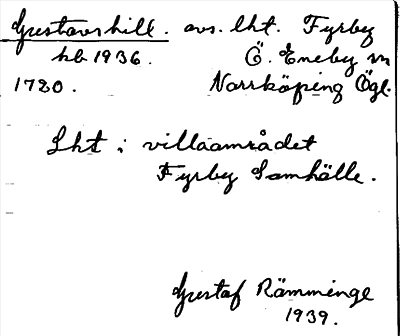 Gustavshill. avs. lht. Fyrby
hb 1936. Ö. Eneby sn
1720. Norrköping Ögl.
Lht i villaområdet
Fyrby Samhälle.
Gustaf Rämminge
1939.